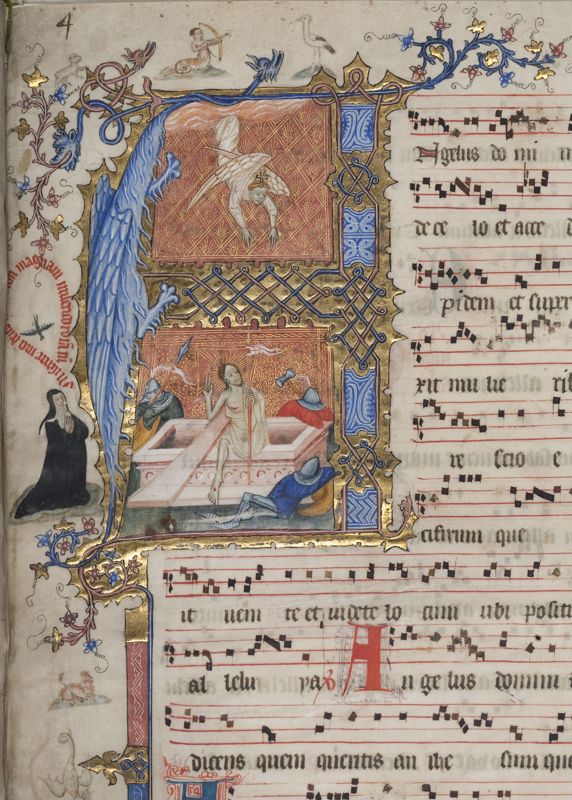 4
Ngelus do mi n
de ce lo et acce d
magnam
pidem et super
xit mu lie rib
re scio e
cifixum que
it uem te et uidete lo cum ubi positu
al lelu ya ℣ An ge lus domini
dicens quem queritis an ihe sum que